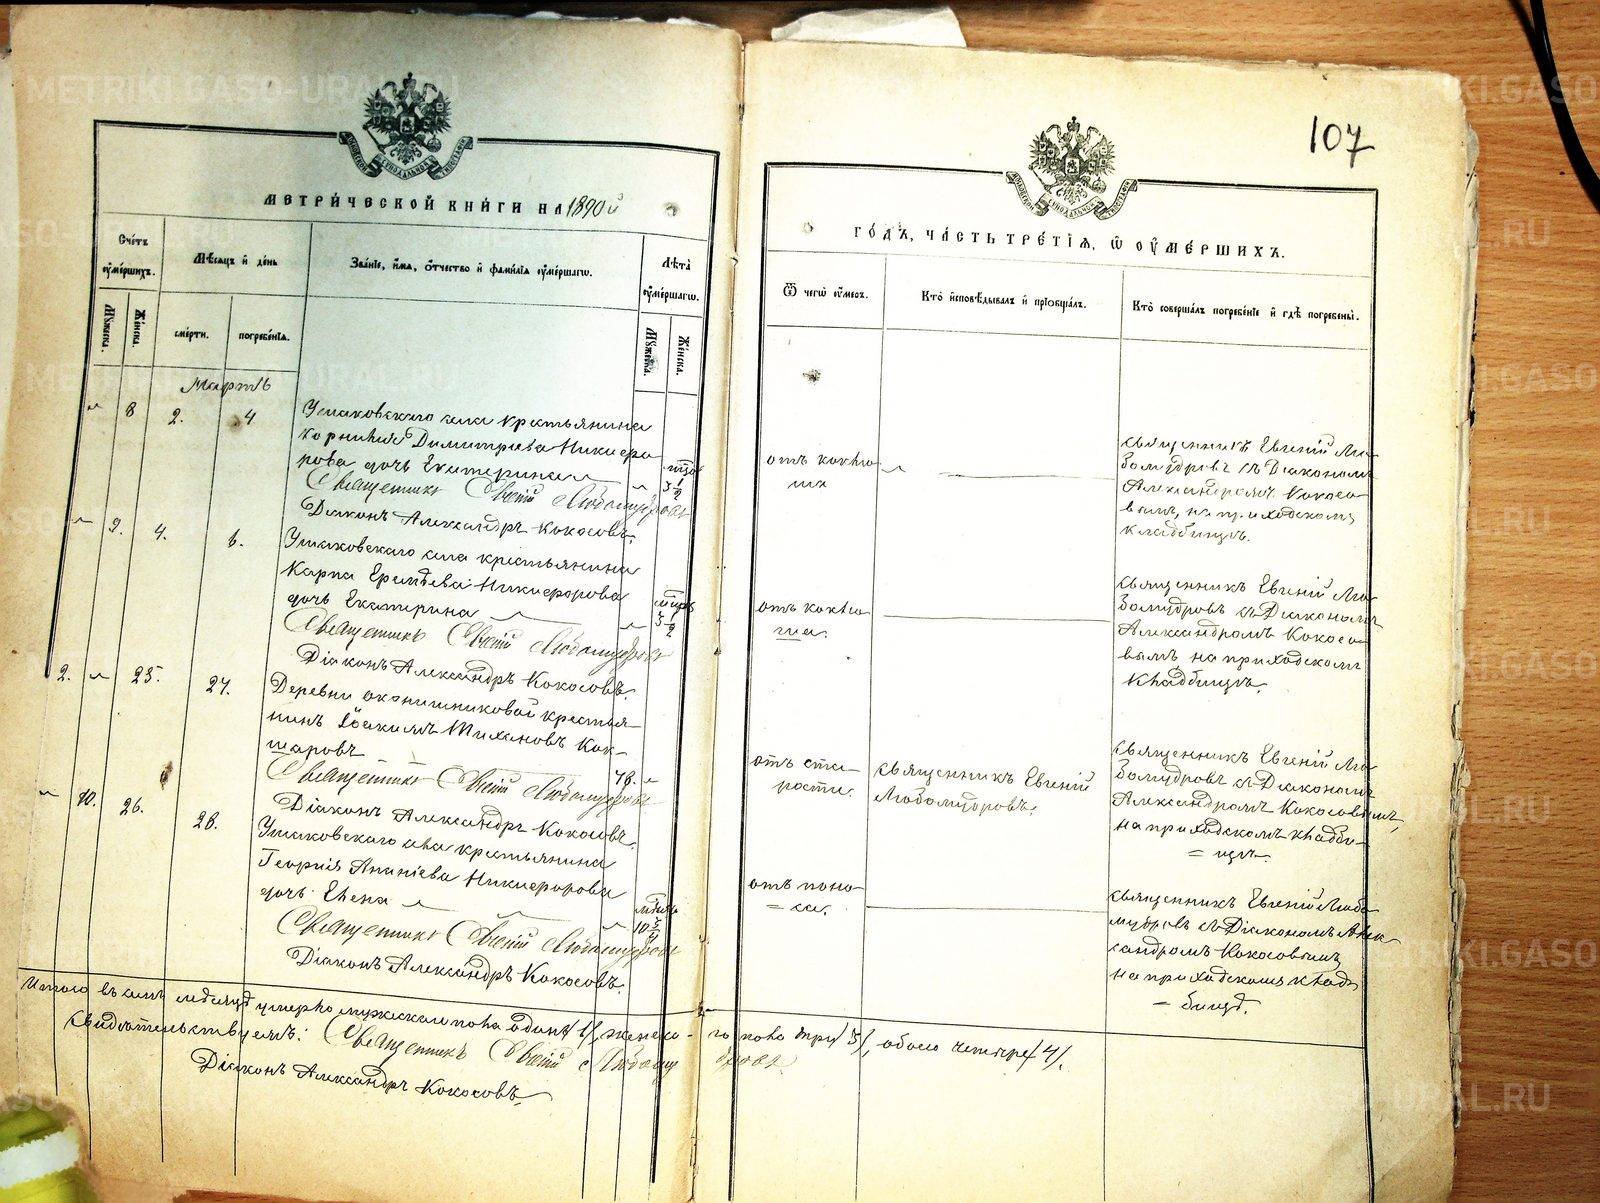 107
МЕТРИЧЕСКОЙ КНИГИ НА 1890й
ГОДЪ, ЧАСТЬ ТРЕТІЯ, Ѿ ОУМЕРШИХЪ.
Счетъ оумершихъ.
Мѣсяцъ и день
Званіе, имя, отчество и фамилія оумершагѡ.
Лѣта оумершагѡ.
Ѿ чегѡ оумеръ.
Кто исповѣдывалъ и пріобщалъ.
Кто совершалъ погребеніе и гдѣ погребены.
Мужеска.
Женска.
смерти.
погребенія.
Мужеска.
Женска.
Мартъ
8 2. 4
Ушаковскаго села крестьянина
Корнилія Димитріева Никифо
рова дочь Екатерина
3 1/2
Священникъ Евгеній Любомудровъ
Діаконъ Александръ Кокосовъ.
отъ коклю
ша
священникъ Евгеній Лю
бомудровъ съ Діакономъ
Александромъ Кокосо
вымъ, на приходскомъ
кладбищѣ.
9. 4. 6.
Ушаковскаго села крестьянина
Карпа Еремѣева Никифорова
дочь Екатерина
3 1/2
Священникъ Евгеній Любомудровъ
Діаконъ Александръ Кокосовъ.
отъ коклю
ша.
священникъ Евгеній Лю
бомудровъ съ Діакономъ
Александромъ Кокосо
вымъ, на приходскомъ
кладбищѣ.
2. 25. 27.
Деревни крестья
нинъ Іоакимъ Тихановъ Кок-
шаровъ
78.
Священникъ Евгеній Любомудровъ
Діаконъ Александръ Кокосовъ.
отъ ста-
рости.
священникъ Евгеній
Любомудровъ.
священникъ Евгеній Лю
бомудровъ съ Діакономъ
Александромъ Кокосовымъ,
на приходскомъ кладби-
= щѣ
10. 26. 28.
Ушаковскаго села крестьянина
Георгія Ананіева Никифорова
дочь Елена
10 3/4
Священникъ Евгеній Любомудровъ
Діаконъ Александръ Кокосовъ.
отъ поно-
= са.
священникъ Евгеній Любо
мудровъ съ Діакономъ Алек
сандромъ Кокосовымъ
на приходскомъ клад
= бищѣ.
Итого въ семъ мѣсяцѣ умерло мужескаго пола одинъ /1/, женска-го пола три /3/, обоего четыре /4/.
Свидѣтельствуемъ: Священникъ Евгеній Любомудровъ
Діаконъ Александръ Кокосовъ.
METRIKI.GASO-URAL.RU